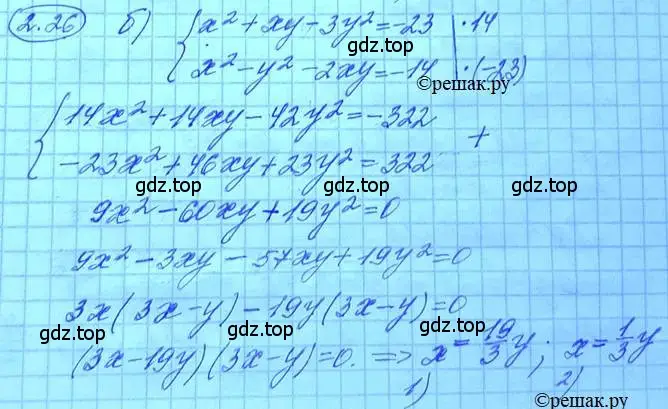 2.26 б) { x² + xy - 3y² = -23 | · 14
gdz.top
x² - y² - 2xy = -14 | · (-23)
©решак.ру
{ 14x² + 14xy - 42y² = -322
+
-23x² + 46xy + 23y² = 322
gdz.top gdz.top gdz.top
9x² - 60xy + 19y² = 0
9x² - 3xy - 57xy + 19y² = 0
3x(3x - y) - 19y(3x - y) = 0
gdz.top gdz.top gdz.top
(3x - 19y)(3x - y) = 0. => x = 19/3 y; x = 1/3 y
1) 2)
©решак.ру